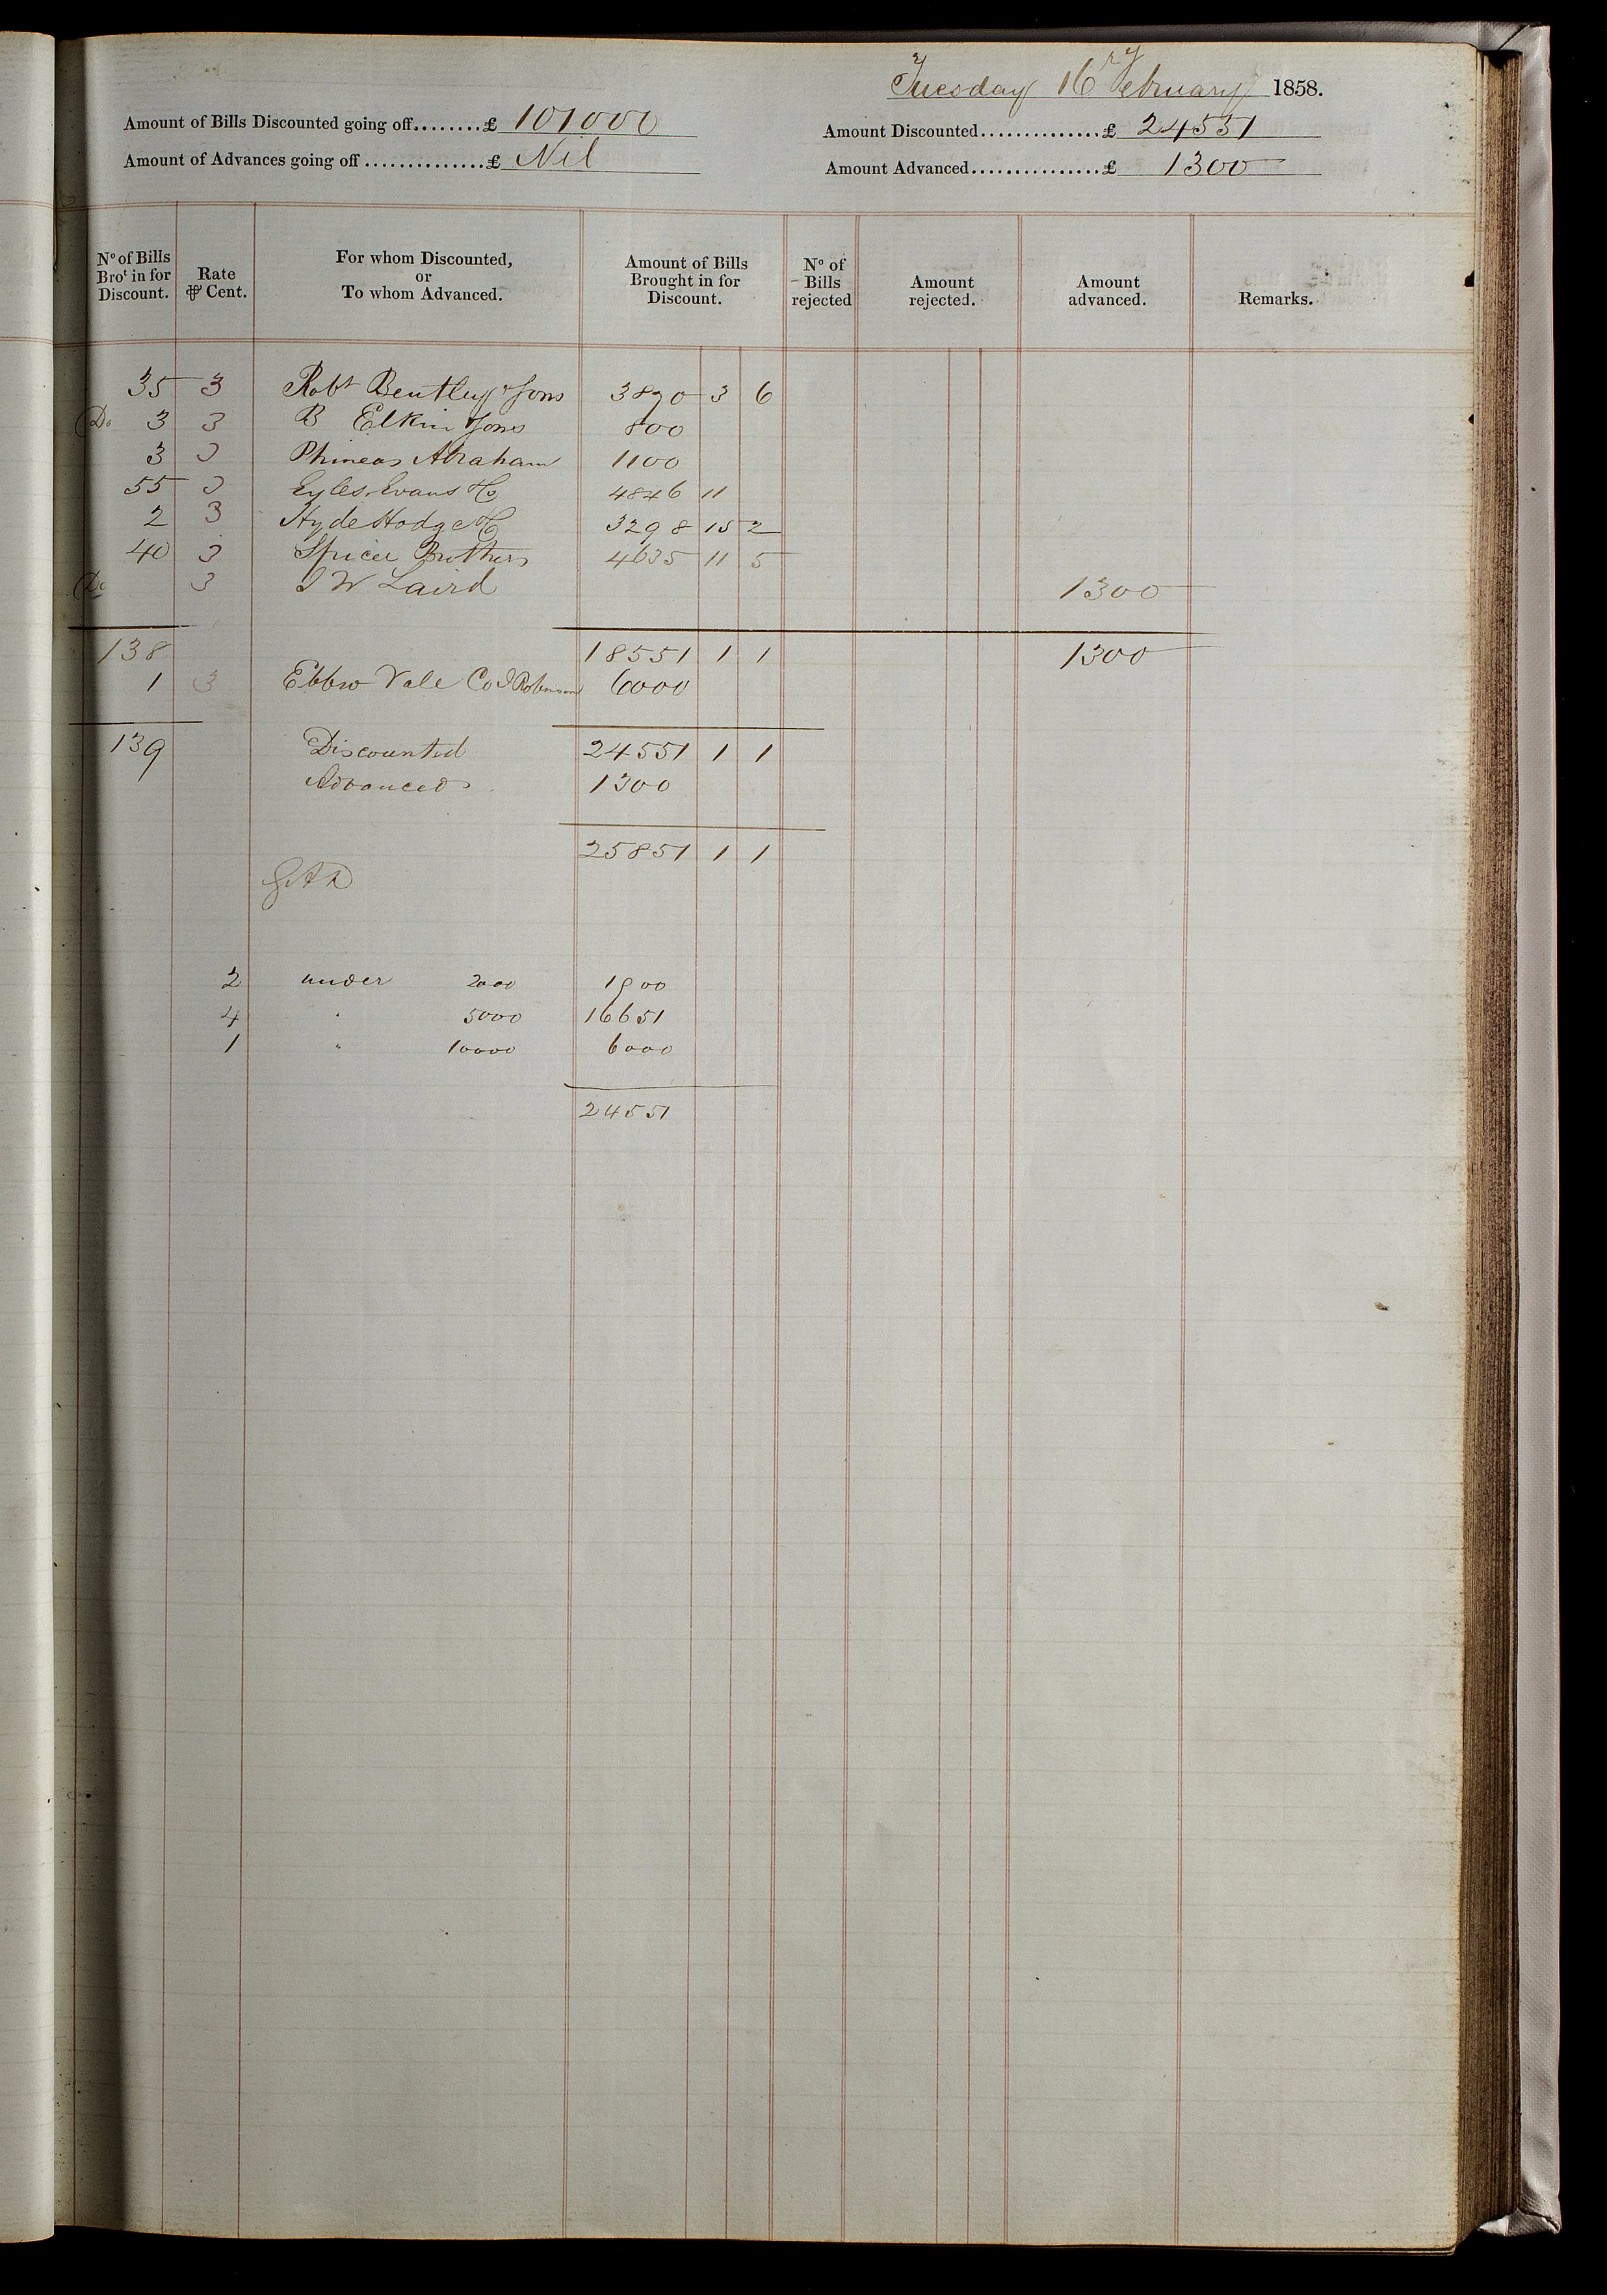 Tuesday 16 February 1858.
Amount of Bills Discounted going off........£ 101000 Amount Discounted..............£ 24551
Amount of Advances going off...............£ Nil Amount Advanced................£ 1300
No of Bills Brot in for Discount. Rate ⅌ Cent. For whom Discounted, or To whom Advanced. Amount of Bills Brought in for Discount. No of Bills rejected Amount rejected. Amount advanced. Remarks.
35 3 Robt Bentley & Sons 3870 3 6
Do 3 3 B Elkin & Sons 800
3 3 Phineas Abraham 1100
55 3 Eyles Evans & Co 4846 11
2 3 Hyde Hodge & Co 3298 15 2
40 3 Spicer Brothers 4635 11 5
Do 3 J W Laird 1300
138 18551 1 1 1300
1 3 Ebbw Vale Co J Robinson 6000
139 Discounted 24551 1 1
Advanced 1300
25851 1 1
2 under 2000 1900
4 " 5000 16651
1 " 10000 6000
24551